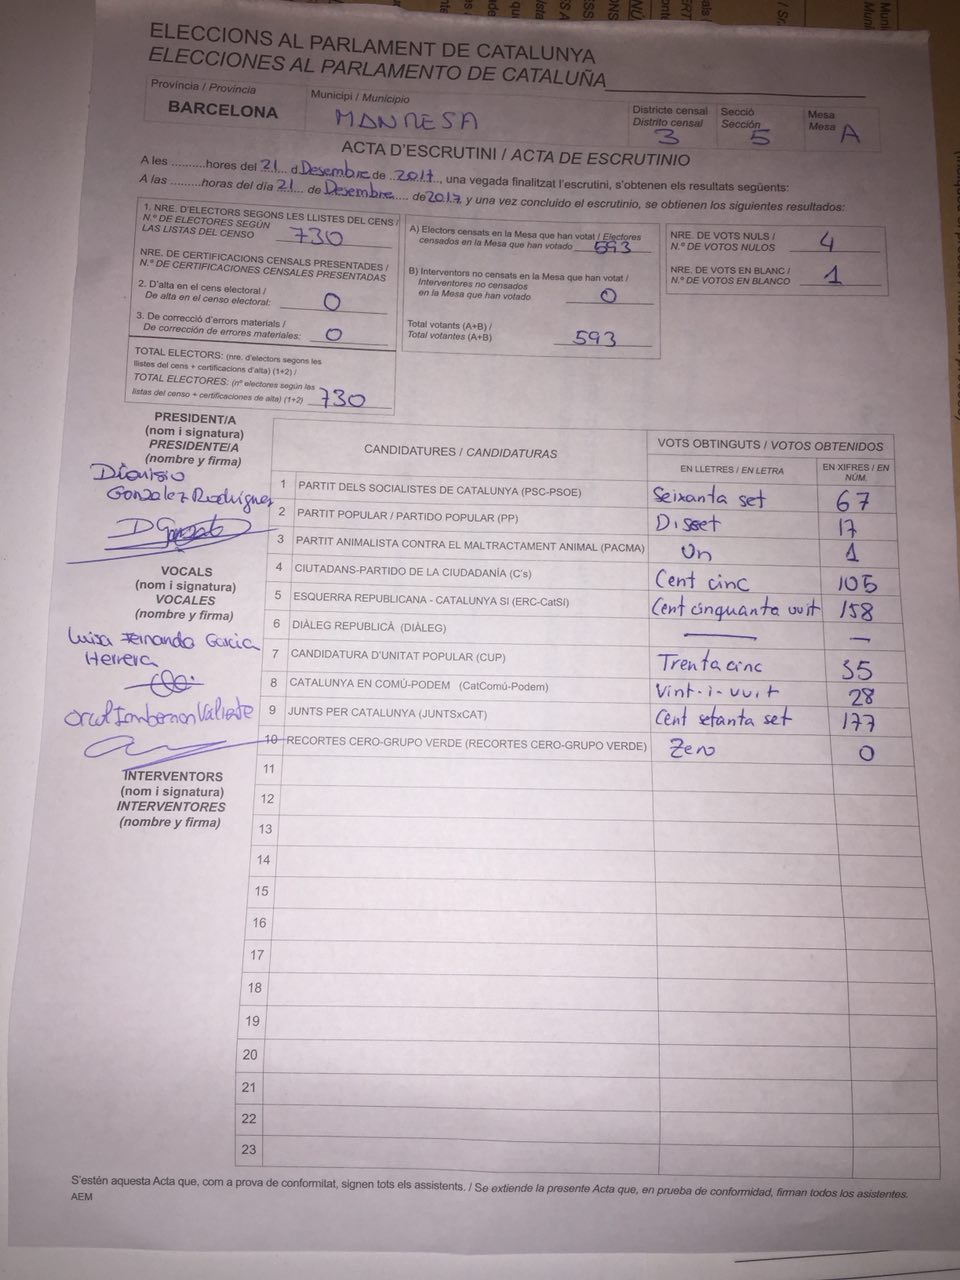 ELECCIONS AL PARLAMENT DE CATALUNYA
ELECCIONES AL PARLAMENTO DE CATALUÑA
Província / Provincia
BARCELONA
Municipi / Municipio
MANRESA
Districte censal
Distrito censal
3
Secció
Sección
5
Mesa
Mesa A
ACTA D'ESCRUTINI / ACTA DE ESCRUTINIO
A les ..........hores del 21... d Desembre de ..2017.., una vegada finalitzat l'escrutini, s'obtenen els resultats següents:
A las ..........horas del día 21... de Desembre.... de 2017 y una vez concluido el escrutinio, se obtienen los siguientes resultados:
1. NRE. D'ELECTORS SEGONS LES LLISTES DEL CENS /
N.º DE ELECTORES SEGÚN
LAS LISTAS DEL CENSO 730
NRE. DE CERTIFICACIONS CENSALS PRESENTADES /
N.º DE CERTIFICACIONES CENSALES PRESENTADAS
2. D'alta en el cens electoral /
De alta en el censo electoral: 0
3. De correcció d'errors materials /
De corrección de errores materiales: 0
TOTAL ELECTORS: (nre. d'electors segons les
llistes del cens + certificacions d'alta) (1+2) /
TOTAL ELECTORES: (nº electores según las
listas del censo + certificaciones de alta) (1+2) 730
A) Electors censats en la Mesa que han votat / Electores
censados en la Mesa que han votado 593
B) Interventors no censats en la Mesa que han votat /
Interventores no censados
en la Mesa que han votado 0
Total votants (A+B) /
Total votantes (A+B) 593
NRE. DE VOTS NULS /
N.º DE VOTOS NULOS 4
NRE. DE VOTS EN BLANC /
N.º DE VOTOS EN BLANCO 1
PRESIDENT/A
(nom i signatura)
PRESIDENTE/A
(nombre y firma)
Dionisio
Gonzalez Rodriguez
VOCALS
(nom i signatura)
VOCALES
(nombre y firma)
Luisa Fernanda Garcia
Herrera
INTERVENTORS
(nom i signatura)
INTERVENTORES
(nombre y firma)
CANDIDATURES / CANDIDATURAS
VOTS OBTINGUTS / VOTOS OBTENIDOS
EN LLETRES / EN LETRA
EN XIFRES / EN NÚM.
1 PARTIT DELS SOCIALISTES DE CATALUNYA (PSC-PSOE) Seixanta set 67
2 PARTIT POPULAR / PARTIDO POPULAR (PP) Disset 17
3 PARTIT ANIMALISTA CONTRA EL MALTRACTAMENT ANIMAL (PACMA) Un 1
4 CIUTADANS-PARTIDO DE LA CIUDADANÍA (C's) Cent cinc 105
5 ESQUERRA REPUBLICANA - CATALUNYA SI (ERC-CatSI) Cent cinquanta vuit 158
6 DIÀLEG REPUBLICÀ (DIÀLEG) — —
7 CANDIDATURA D'UNITAT POPULAR (CUP) Trenta cinc 35
8 CATALUNYA EN COMÚ-PODEM (CatComú-Podem) Vint-i-vuit 28
9 JUNTS PER CATALUNYA (JUNTSxCAT) Cent setanta set 177
10 RECORTES CERO-GRUPO VERDE (RECORTES CERO-GRUPO VERDE) Zero 0
11
12
13
14
15
16
17
18
19
20
21
22
23
S'estén aquesta Acta que, com a prova de conformitat, signen tots els assistents. / Se extiende la presente Acta que, en prueba de conformidad, firman todos los asistentes.
AEM